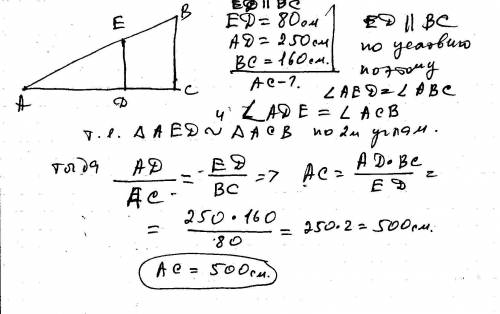 ED || BC
ED = 80 см
AD = 250 см
BC = 160 см.
AC - ?
ED || BC
по условию
поэтому
∠AED = ∠ABC
и ∠ADE = ∠ACB
т.е. △AED ~ △ACB по 2м углам.
тогда AD/AC = ED/BC => AC = AD·BC/ED =
= 250·160/80 = 250·2 = 500 см.
AC = 500 см.
A
E
B
D
C